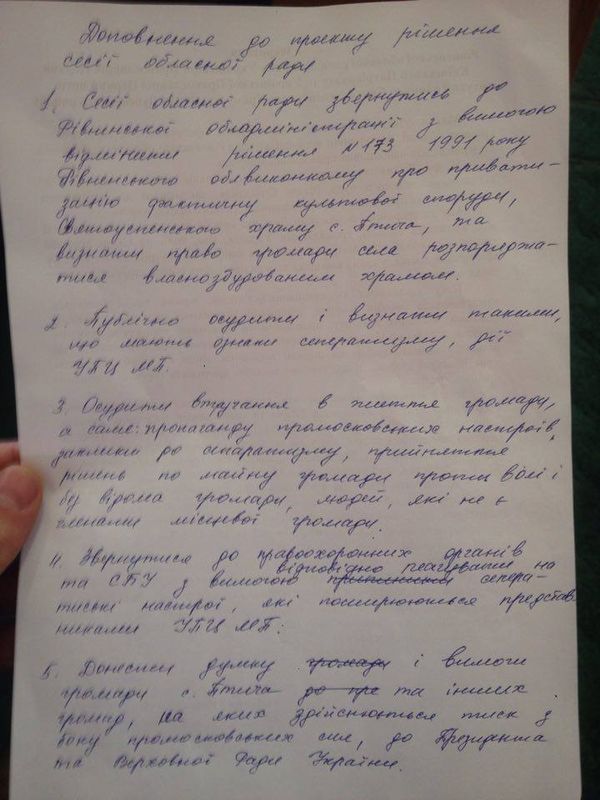 Доповнення до проекту рішення
сесії обласної ради
1. Сесії обласної ради звернутись до
Рівненської облдміністрації з вимогою
відмінити рішення №173 1991 року
Рівненського облвиконкому про привати-
зацію фактичну культової споруди,
Святоуспенського храму с. Птича, та
визнати право громади села розпоряджа-
тися власнозбудованим храмом.
2. Публічно осудити і визнати такими,
що мають ознаки сепаратизму, дії
УПЦ МП.
3. Осудити втручання в життя громади,
а саме: пропаганду промосковських настроїв,
заклики до сипаратизму, прийняття
рішень по майну громади проти волі і
без відома громади, людей, які не є
членами місцевої громади.
4. Звернутися до правоохоронних органів
відповідно реагувати на
та СБУ з вимогою припинити сепера-
тиські настрої, які поширюються представ
никами УПЦ МП.
5. Донести думку громади і вимоги
громади с. Птича до пре та інших
громад, на яких здійснюється тиск з
боку промосковських сил, до Президента
та Верховної Ради України.